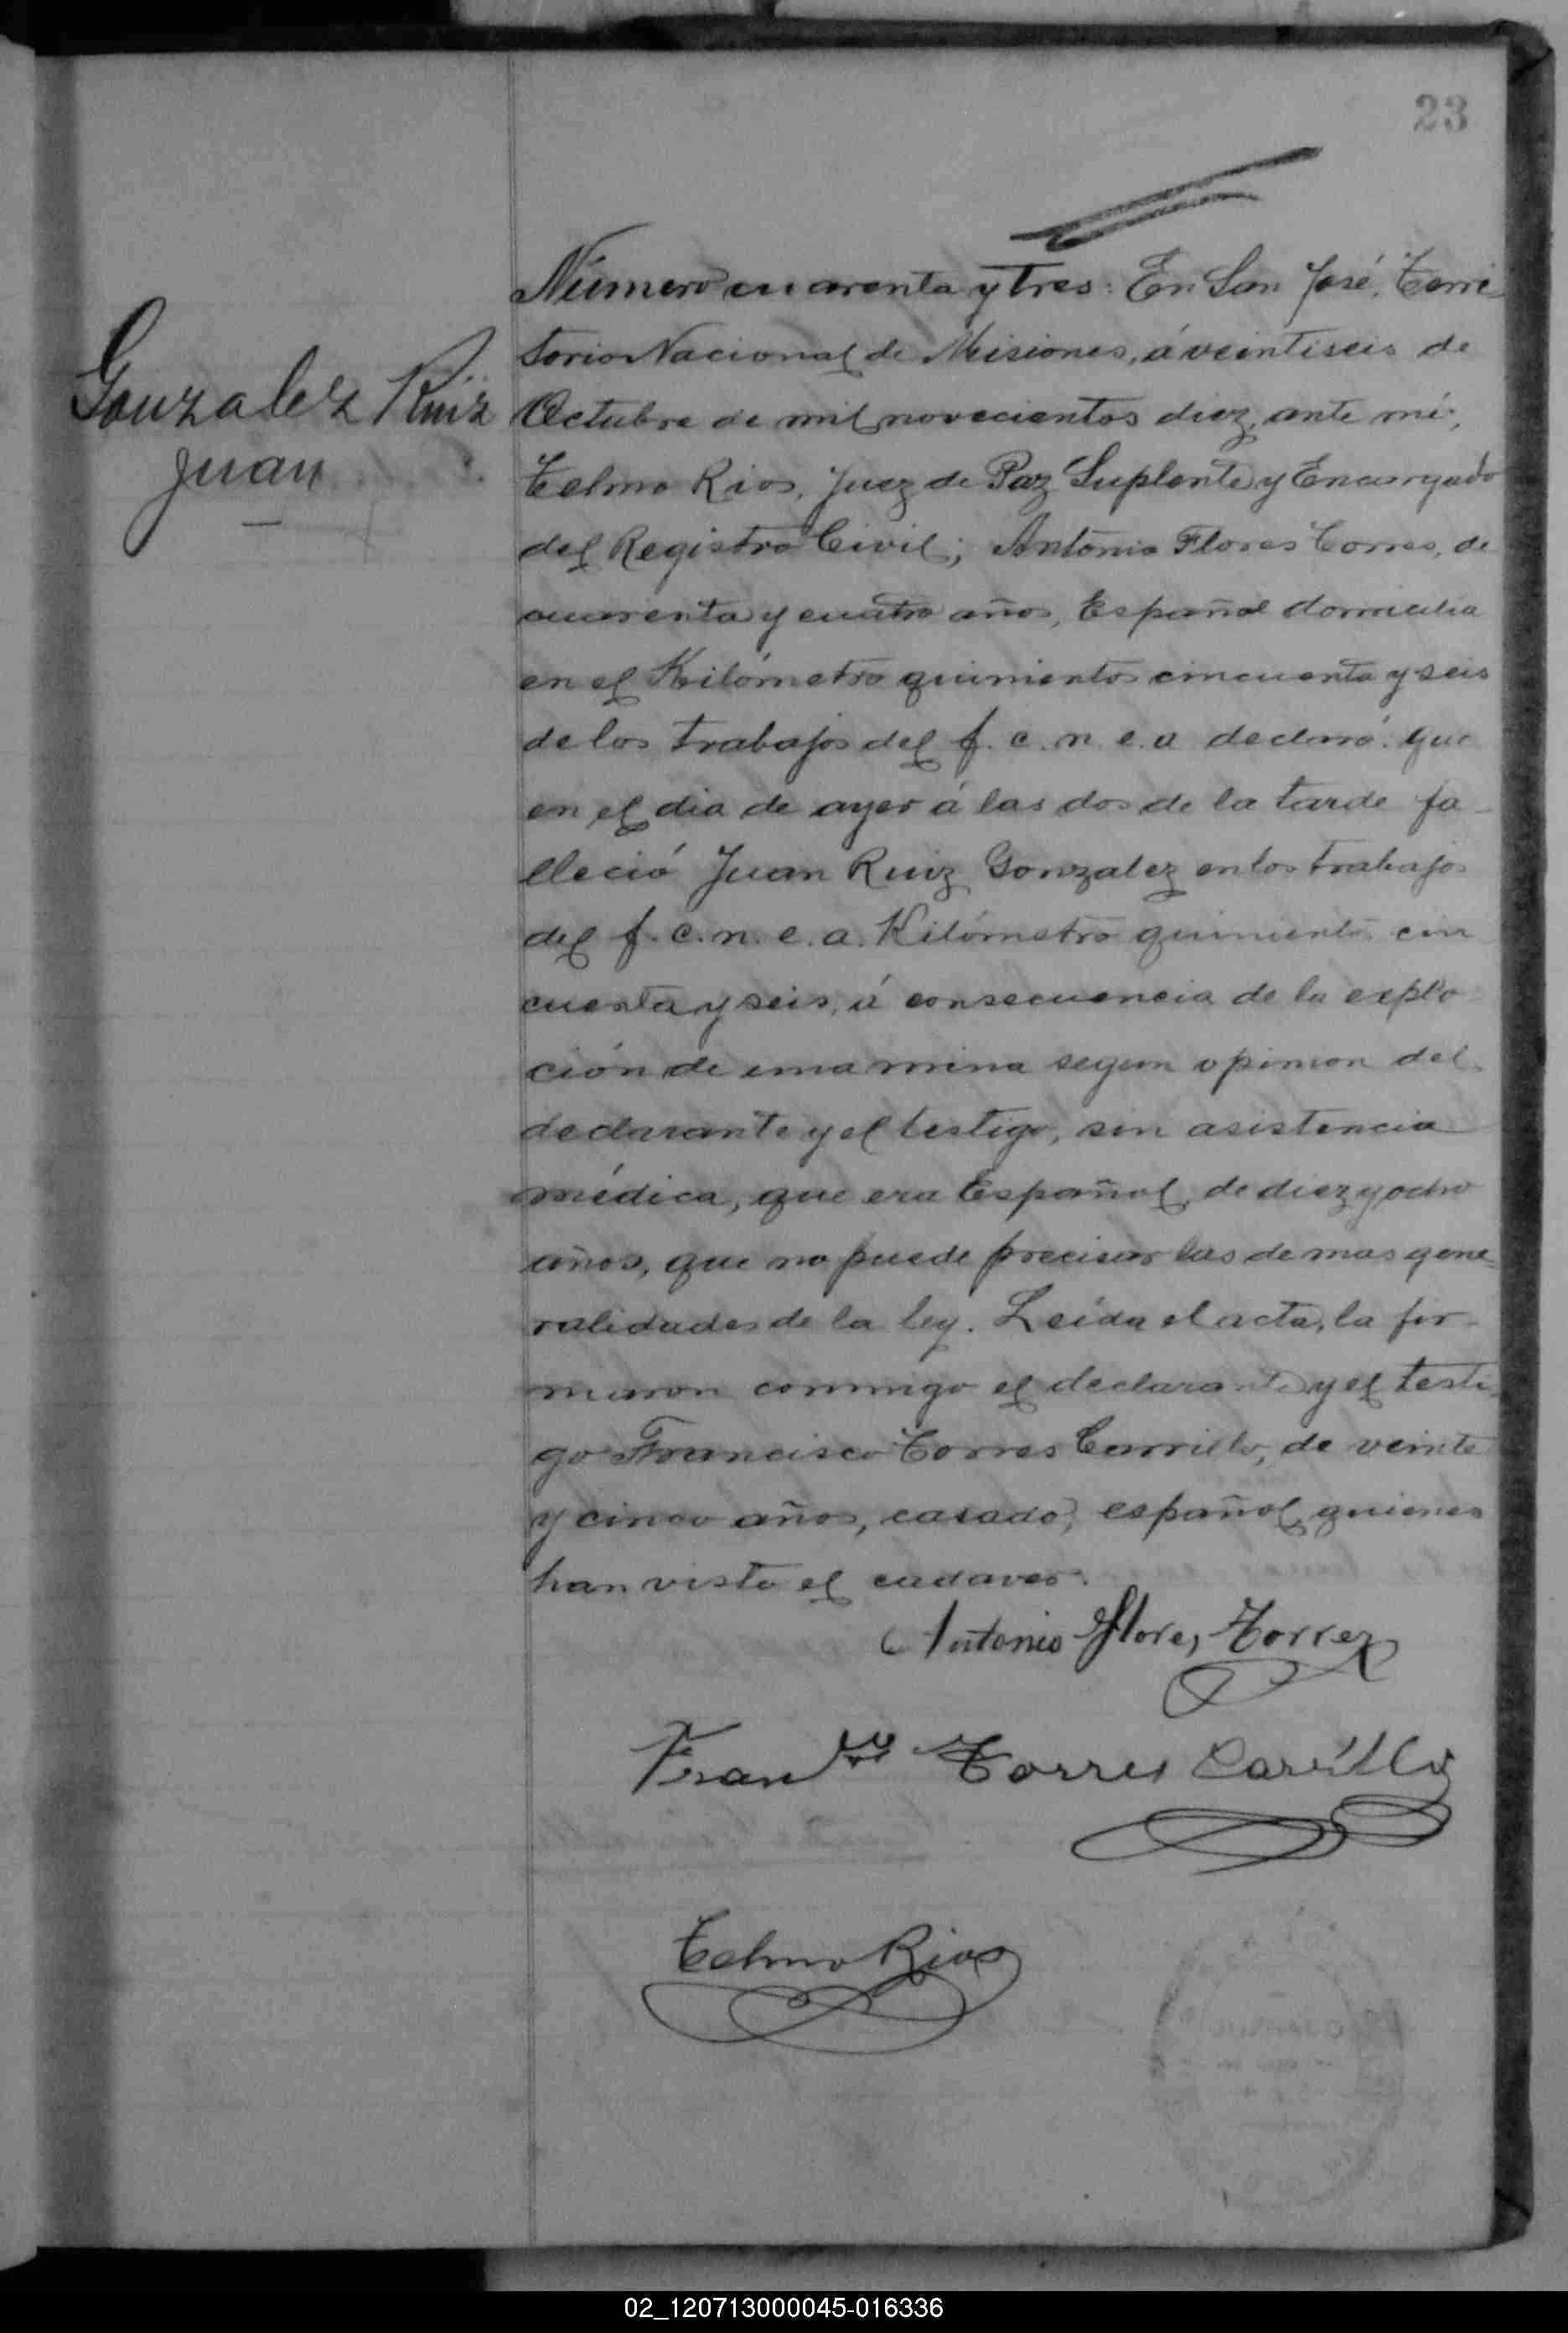 23
Gonzalez Ruiz
Juan
Número cuarenta y tres: En San José, Terri
torio Nacional de Misiones, á veintiseis de
Octubre de mil novecientos diez, ante mí,
Telmo Rios, Juez de Paz Suplente y Encargado
del Registro Civil; Antonio Flores Torres, de
cuarenta y cuatro años, Español domicilia
en el Kilómetro quinientos cincuenta y seis
de los trabajos del f. c. n. e. a declaró: que
en el dia de ayer á las dos de la tarde fa-
lleció Juan Ruiz Gonzalez en los trabajos
del f. c. n. e. a. Kilómetro quinientos cin
cuenta y seis, á consecuencia de la explo
ción de una mina segun opinion del
declarante y el testigo, sin asistencia
médica, que era Español, de diez y ocho
años, que no puede precisar las demas gene=
ralidades de la ley. Leída el acta, la fir-
maron conmigo el declarante y el testi
go Francisco Torres Carrillo, de veinte
y cinco años, casado, español, quienes
han visto el cadaver.
Antonio Flores Torres
Franco Torres Carrillo
Telmo Rios
02_120713000045-016336